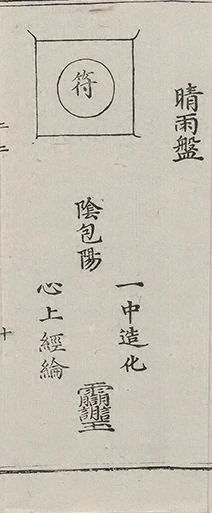 晴雨盤
符
陰包陽
一中造化
心上經綸